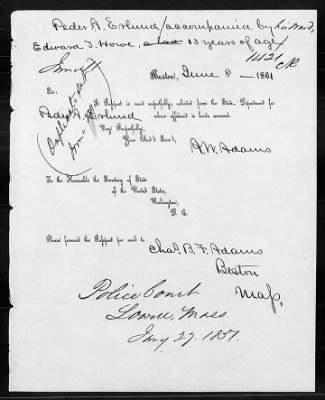 Peder A. Erlund /accompanied by his ward,
Edward T. Howe, a lad 13 years of age/
Boston, June 8 1861
Sir,
A Passport is most respectfully solicited from the State Department for
Peder A. Erlund whose affidavit is hereto annexed.
Very Respectfully,
Your Obed't Serv't,
A. W. Adams
To the Honorable the Secretary of State
of the United States,
Washington,
D. C.
Please forward the Passport per mail to
Chas. B. F. Adams
Boston
Mass,
Police Court
Mass.